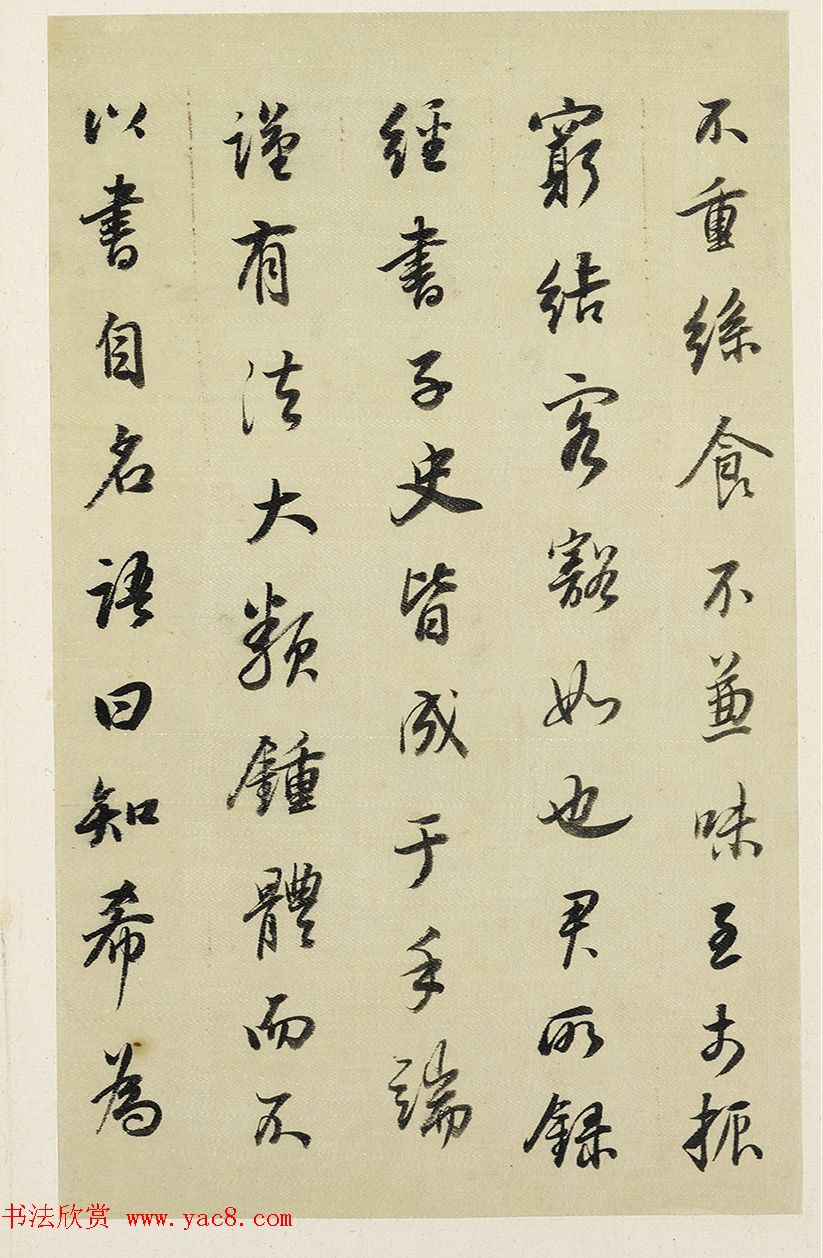 不重絲食不兼味至于振
窮結客豁如也君所錄
經書子史皆成于手端
謹有法大類鍾體而不
以書自名語曰知希為
书法欣赏 www.yac8.com